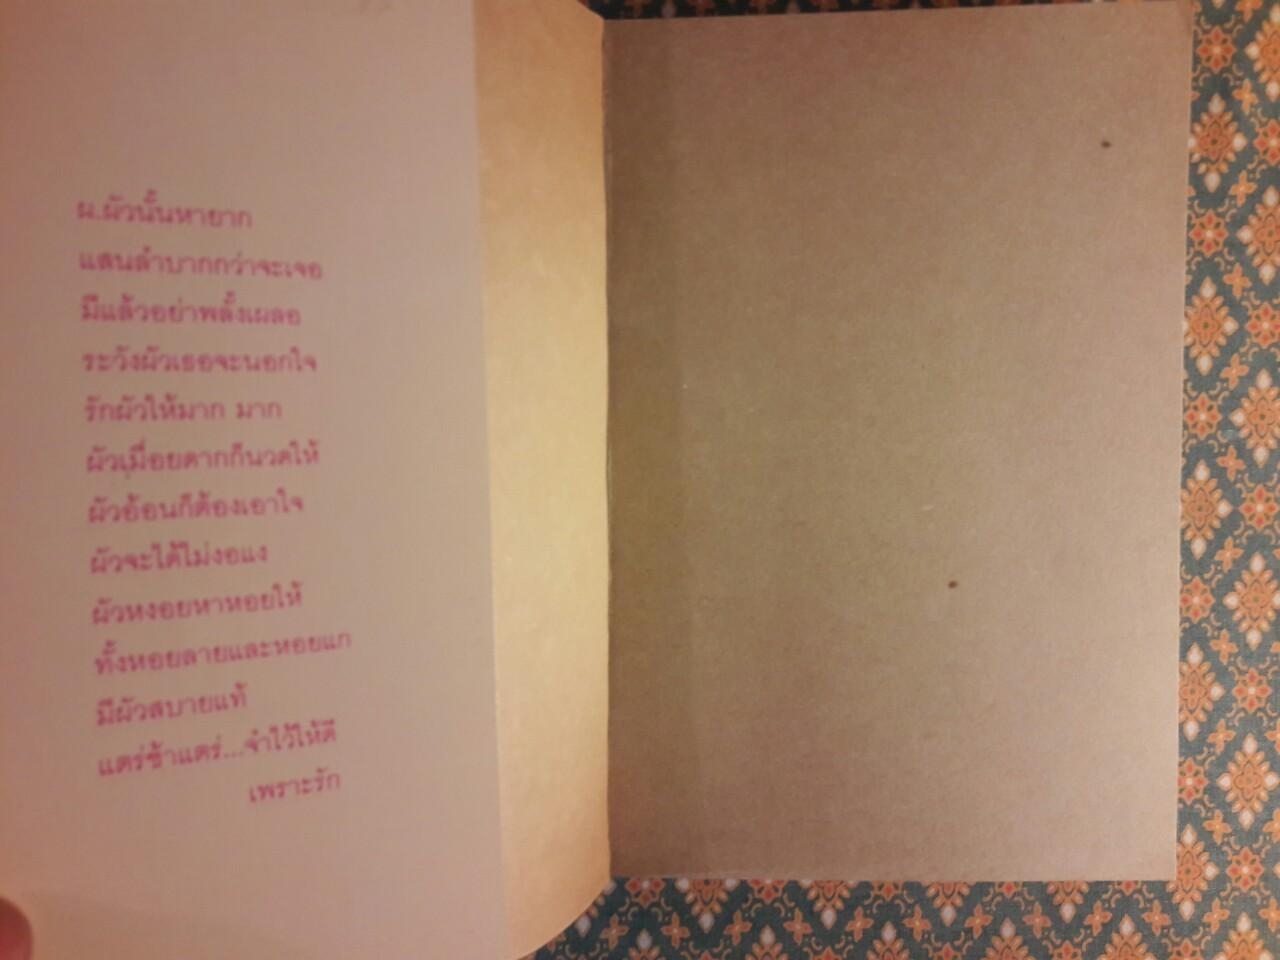 ผ.ผัวนั้นหายาก
แสนลำบากกว่าจะเจอ
มีแล้วอย่าพลั้งเผลอ
ระวังผัวเธอจะนอกใจ
รักผัวให้มาก มาก
ผัวเมื่อยดากก็นวดให้
ผัวอ้อนก็ต้องเอาใจ
ผัวจะได้ไม่งอแง
ผัวหงอยหาหอยให้
ทั้งหอยลายและหอยแก
มีผัวสบายแท้
แตร่ช้าแตร่...จำไว้ให้ดี
เพราะรัก